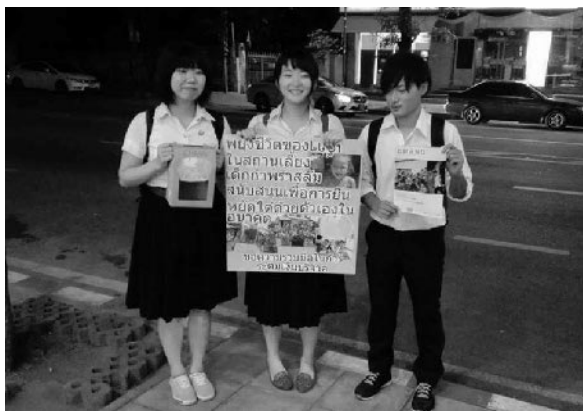 พยุงชีวิตของ
ในสถานเลี้ยง
เด็กกำพร้าสลัม
สนับสนุนเพื่อการยืน
หยัดได้ด้วยตัวเองใน
อนาคต
ขอความร่วมมือในการ
ระดมเงินบริจาค